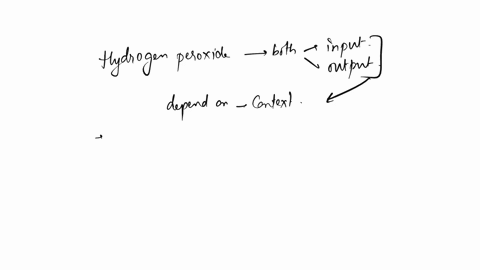 Hydrogen peroxide → both → input.
→ output
depend on - Context.
→